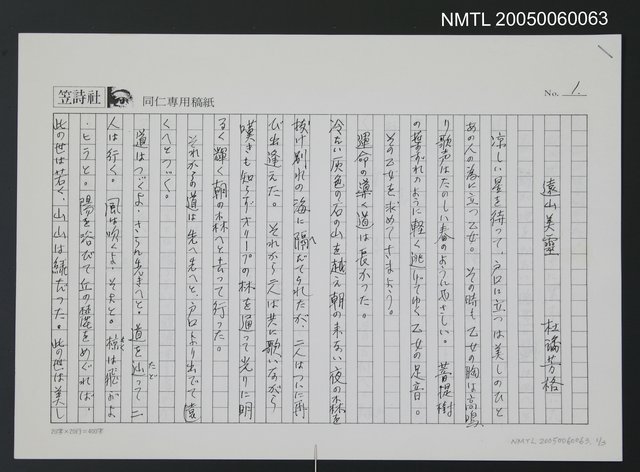 NMTL 20050060063
笠詩社
同仁専用稿紙
No. 1.
遠山美靈
杜潘芳格
涼しい星を待って、戸口に立つは美しのひと
あの人の為に立つ乙女。その時も乙女の胸は高鳴
り歌声はたのしい春のようにやさしい。菩提樹
の葉ずれのように軽く逃げてゆく乙女の足音。
その乙女を求めてさまよう。
運命の導く道は長かった。
冷たい灰色の石の山を越え朝の来ない夜の森を
抜け別れの海に隔たてられたが、二人はついに再
び出逢えた。それから二人は共に歌いながら
嘆きも知らずオリーブの林を通って光りに明
るく輝く朝の林へと去って行った。
それからの道は先へ先へと、戸口より出でて遠
くへとつづく。
道はつづくよ、さらに先きへと。道を辿って二
たど
人は行く。風は吹くよ・そよと。椋は飛がよ
・ヒラと。陽を浴びて丘の麓をめぐれば、
此の世は若く、山山は緑だった。此の世は美し
20字×20行=400字
NMTL 20050060063, 1/3